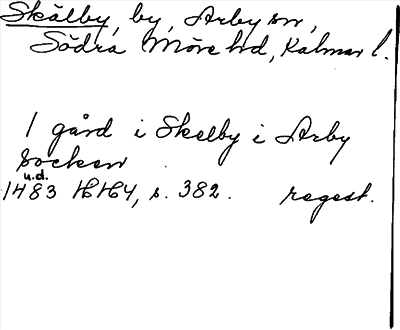 Skälby, by, Arby sn,
Södra Möre hd, Kalmar l.
1 gård i Skelby i Arby
socken
u.d.
1483 HH4, s. 382. regest.